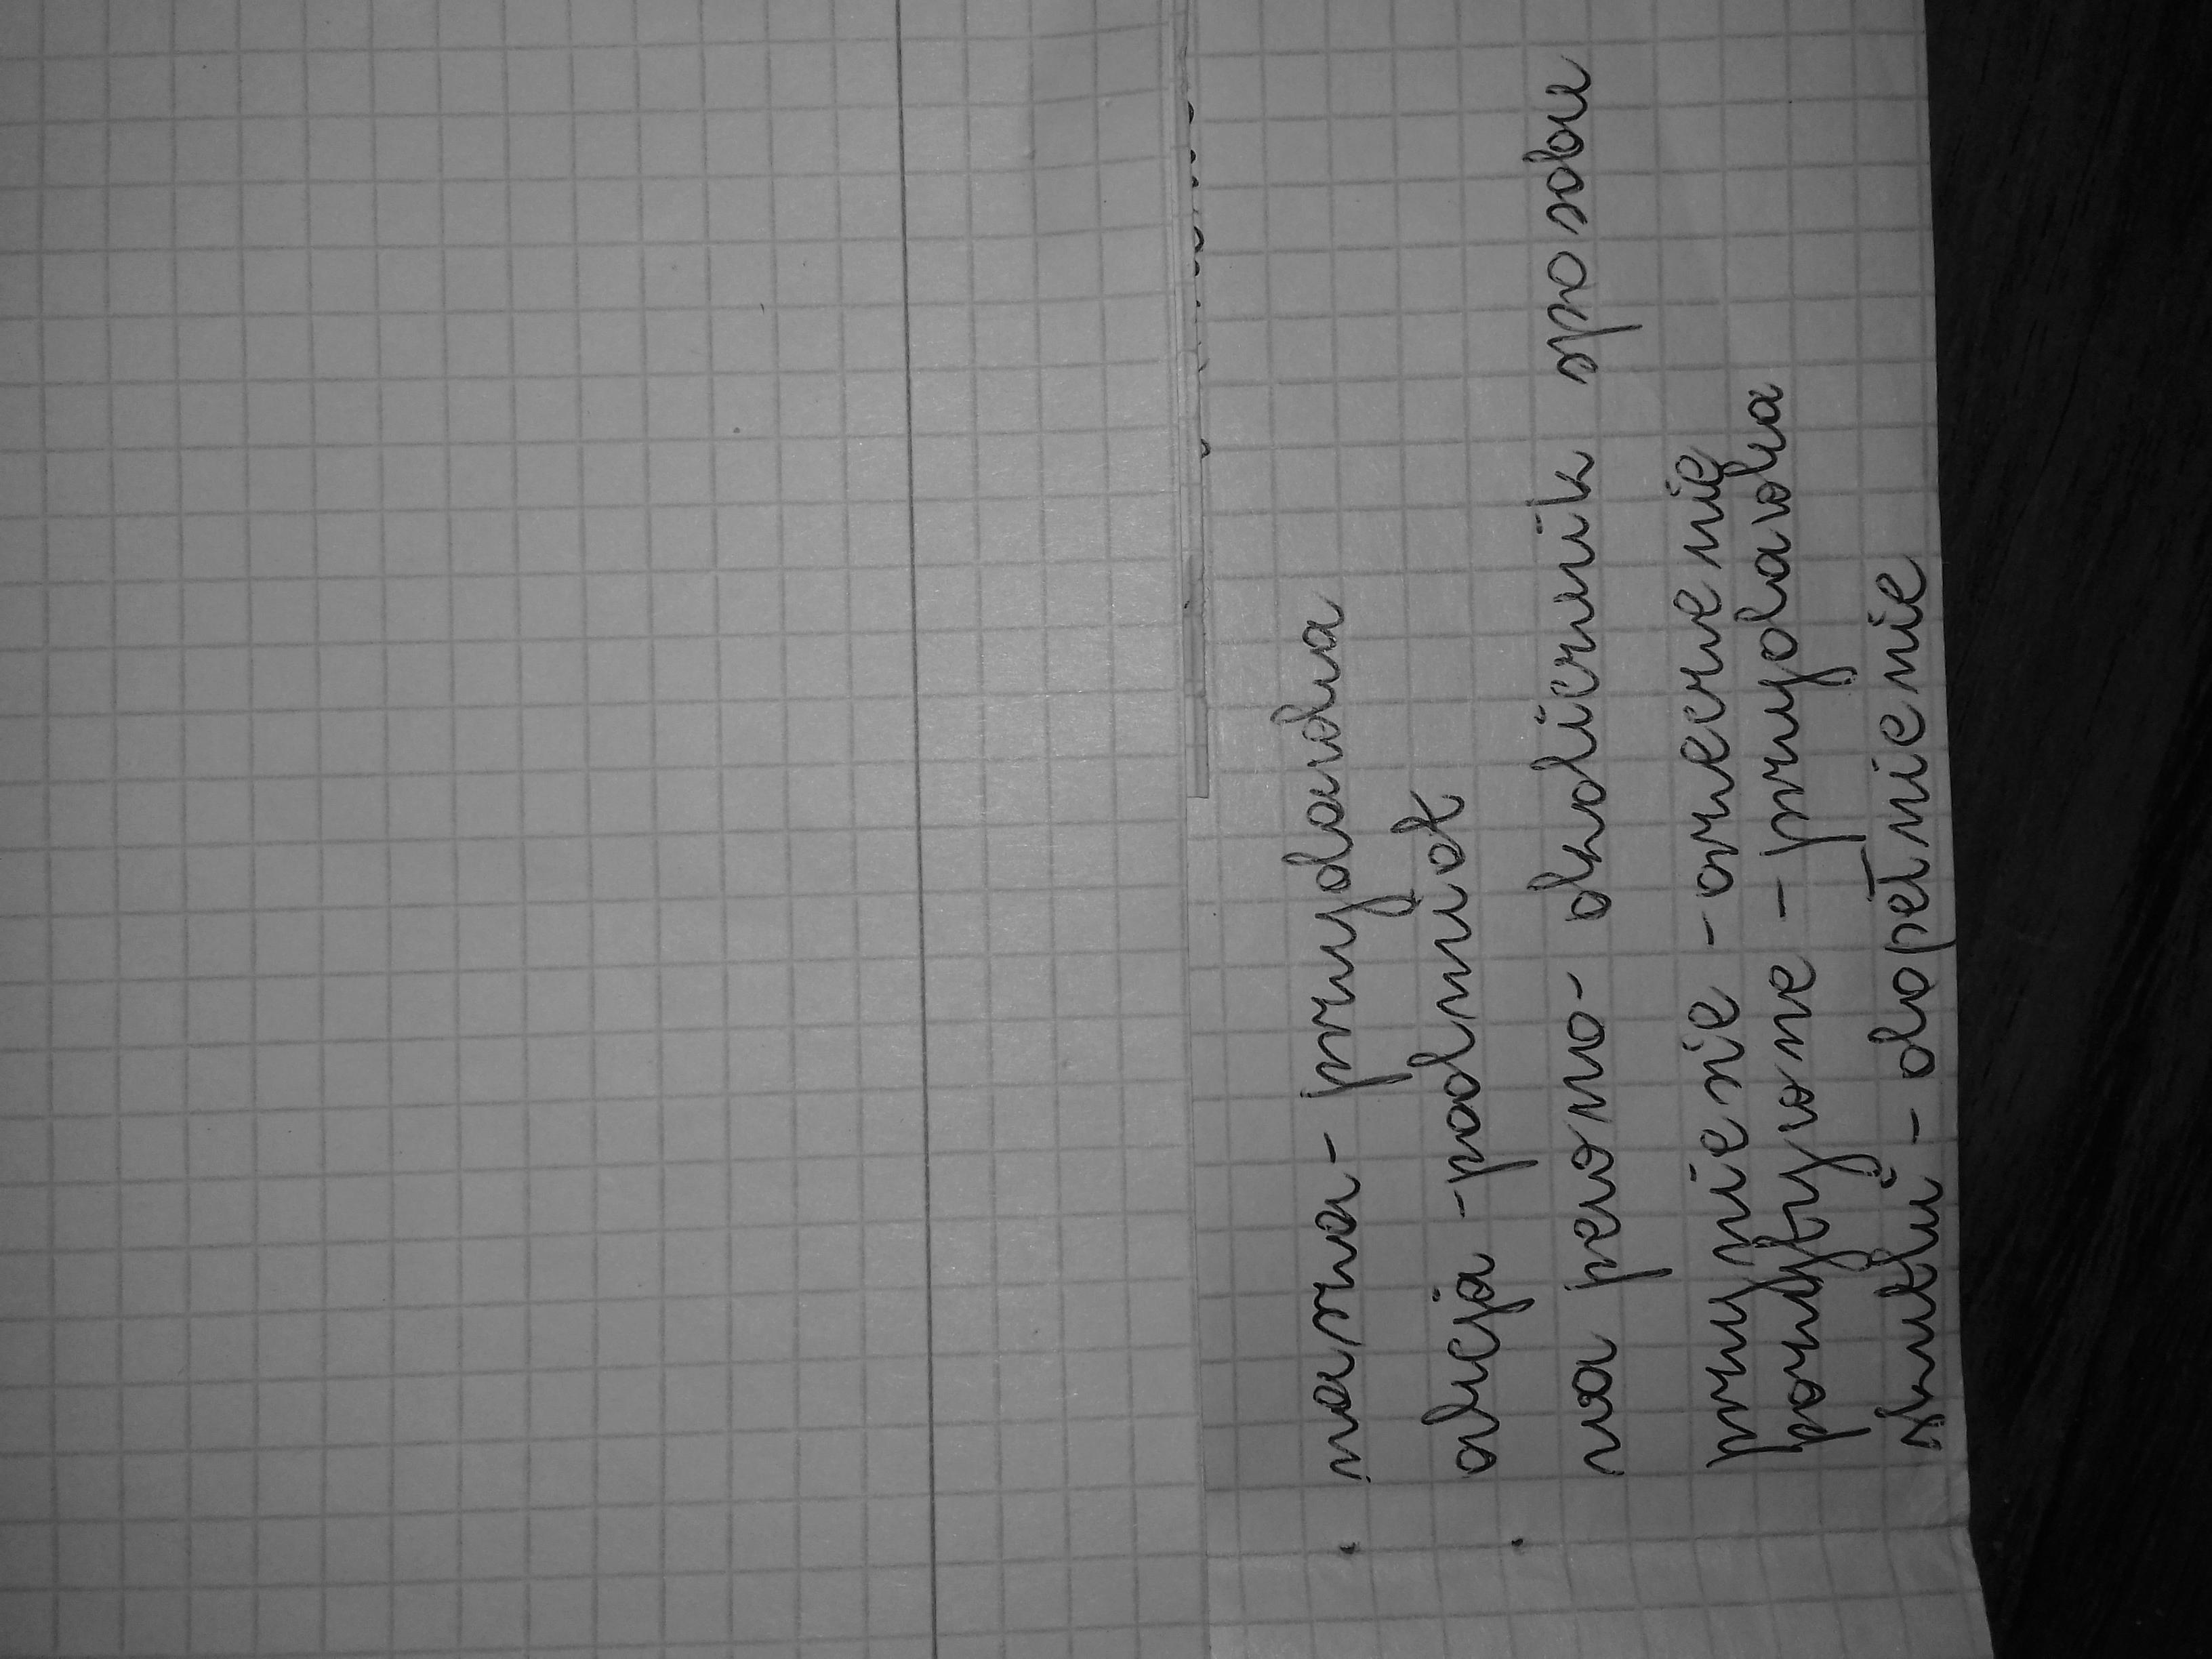 nasza - przydawka
akcja - podmiot
na pewno - okolicznik sposobu
przyniesie - orzeczenie
pozytywne - przydawka
skutki - dopełnienie